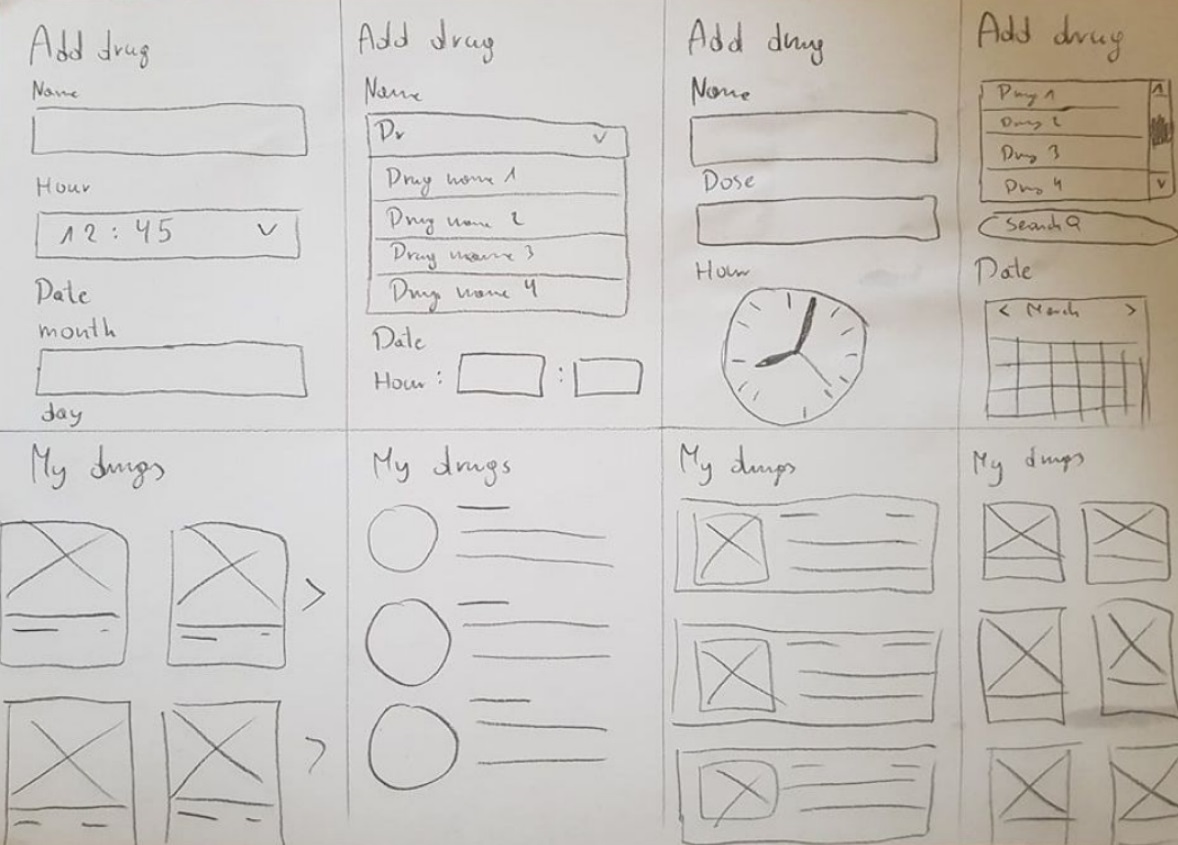 Add drug
Name
Hour
12:45
Date
month
day
Add drug
Name
Dr
Drug name 1
Drug name 2
Drug name 3
Drug name 4
Date
Hour: :
Add drug
Name
Dose
Hour
Add drug
Drug 1
Drug 2
Drug 3
Drug 4
Search
Date
< March >
My drugs
My drugs
My drugs
My drugs